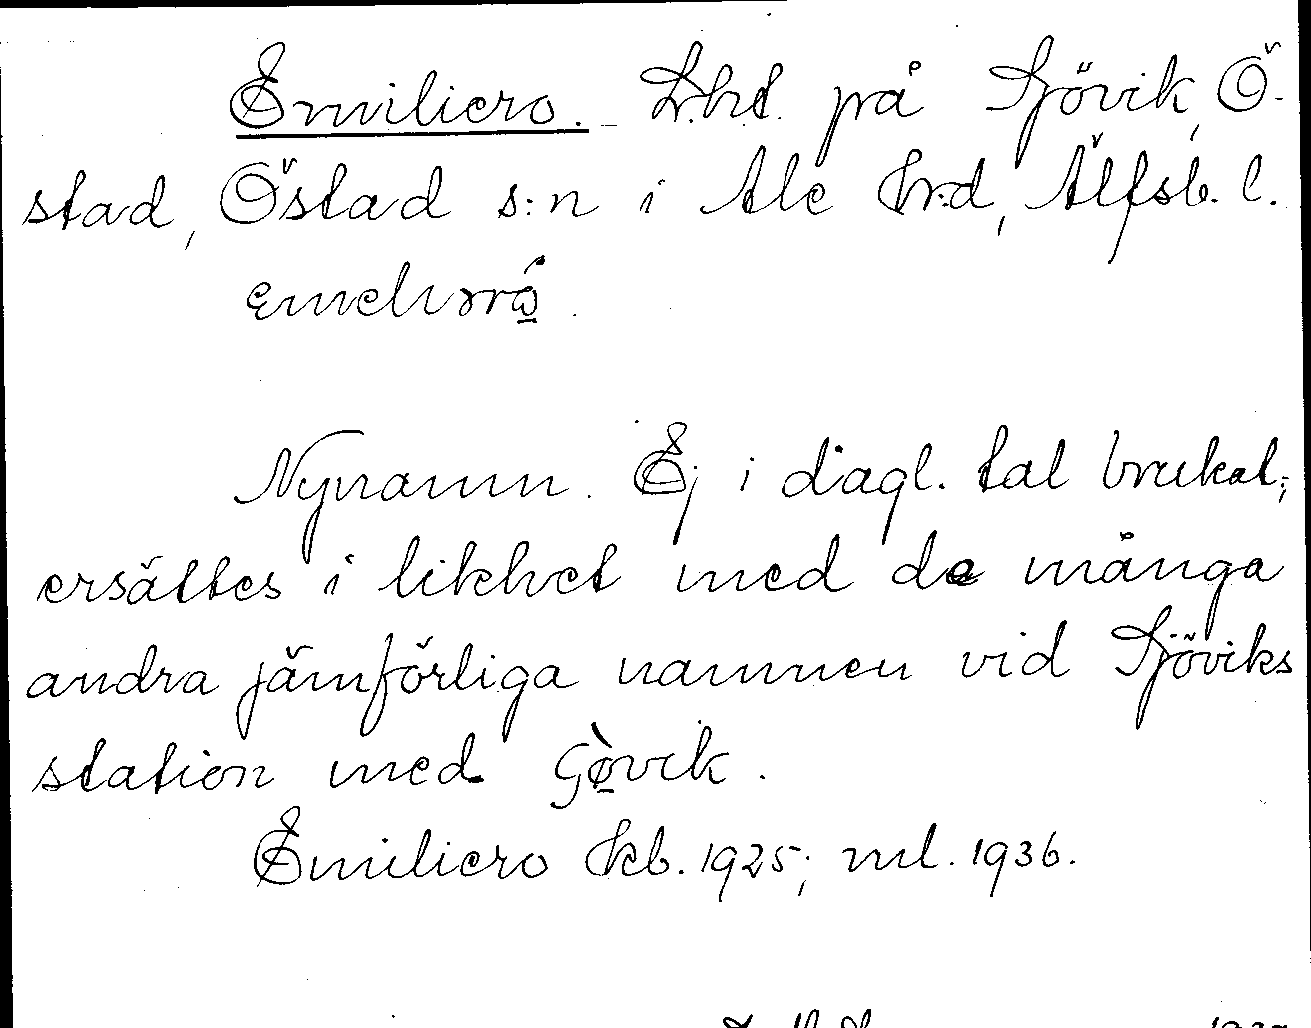 Emiliero. Lht. på Sjövik, Ö-
stad, Östad s:n i Ale hrd, Älfsb. l.
Nynamn. Ej i dagl. tal brukat;
ersättes i likhet med de många
andra jämförliga namnen vid Sjöviks
station med
Emiliero kb. 1925; ml. 1936.